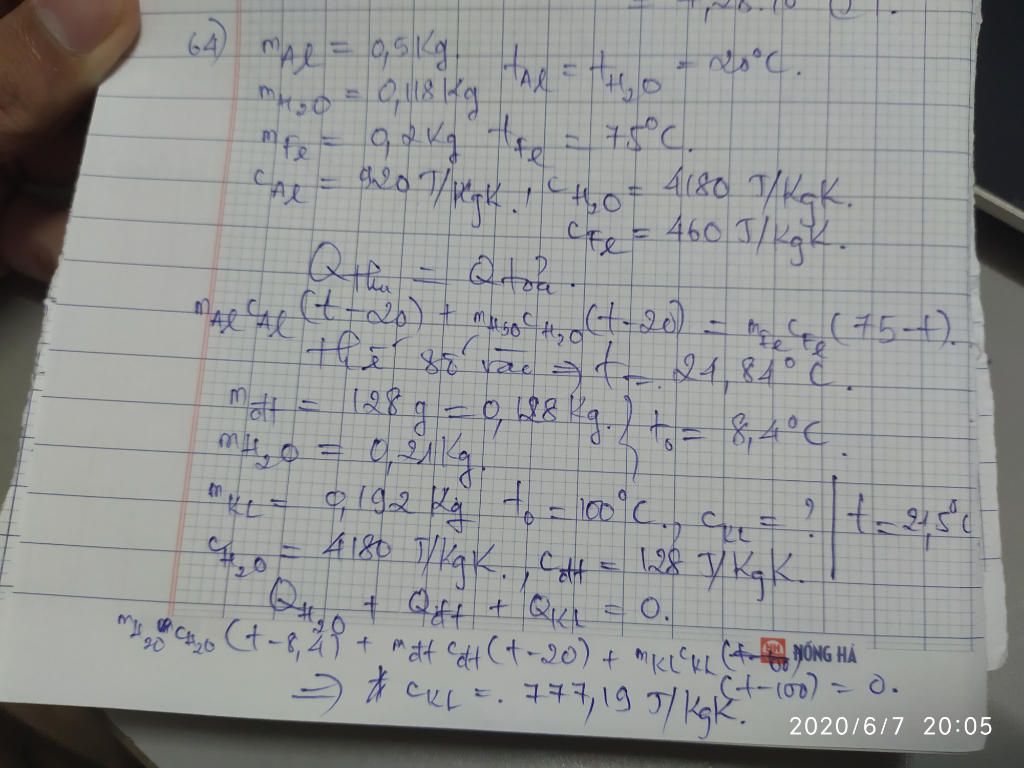 64) m_Al = 0,5 Kg t_Al = t_H₂O = 20°C.
m_H₂O = 0,118 Kg
m_Fe = 0,2 Kg t_Fe = 75°C.
c_Al = 920 J/KgK., c_H₂O = 4180 J/KgK.
c_Fe = 460 J/KgK.
Q thu = Q tỏa.
m_Al c_Al (t-20) + m_H₂O c_H₂O (t-20) = m_Fe c_Fe (75-t).
thế số vào ⇒ t = 24,84°C.
m_đt = 128 g = 0,128 Kg. } t₀ = 8,4°C.
m_H₂O = 0,21 Kg.
m_KL = 0,192 Kg t₀ = 100°C., c_KL = ? | t = 21,5°C
c_H₂O = 4180 J/KgK., c_đt = 128 J/KgK.
Q_H₂O + Q_đt + Q_KL = 0.
m_H₂O c_H₂O (t-8,4) + m_đt c_đt (t-20) + m_KL c_KL
HH HỒNG HÀ
(t-100) = 0.
⇒ c_KL = 777,19 J/KgK.
2020/6/7 20:05